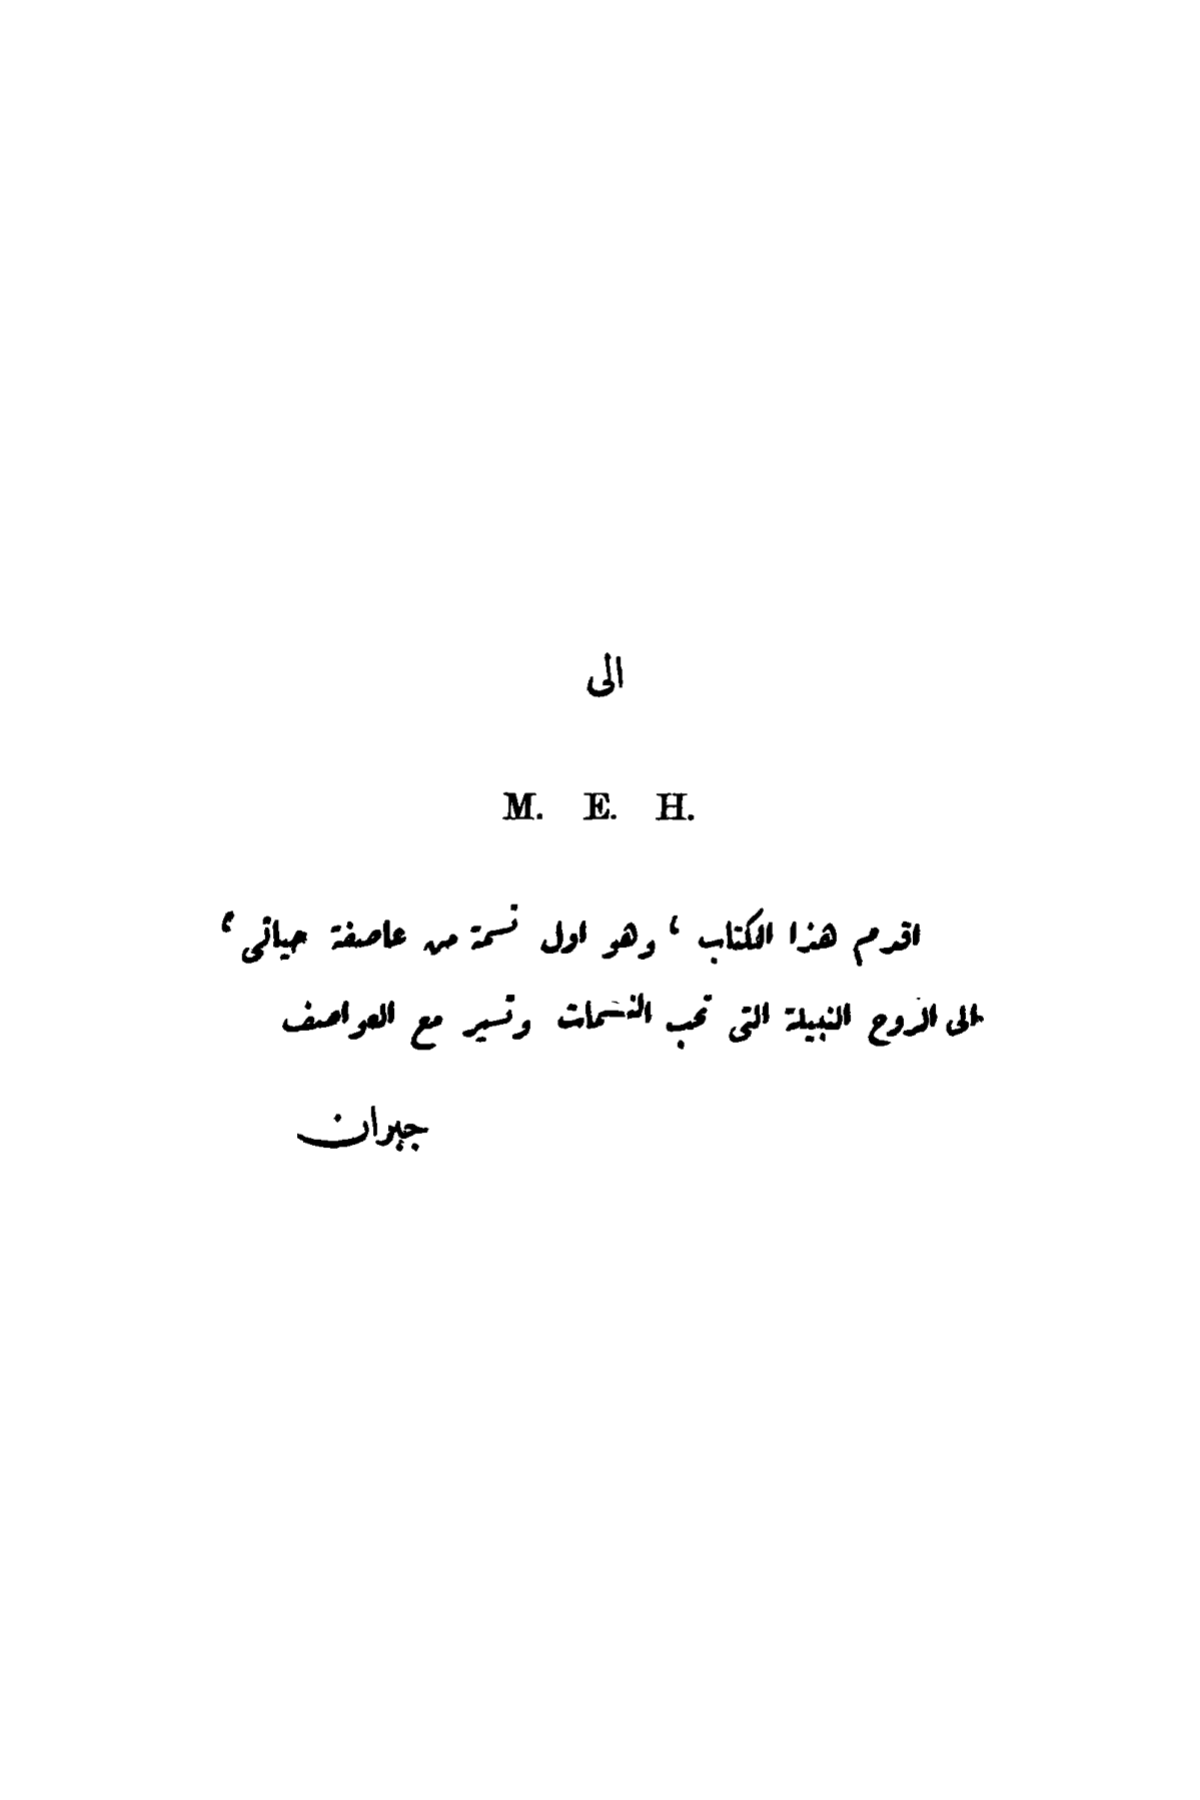 الى
M. E. H.
اقدم هذا الكتاب ، وهو اول نسمة من عاصفة حياتى ،
الى الروح النبيلة التى تحب النسمات وتسير مع العواصف
جبران